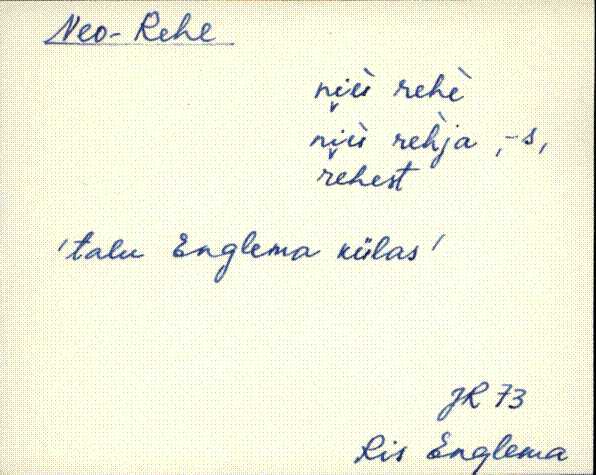 Neo-Rehe
rehè
rehja, -s,
rehest
'talu Englema külas'
JR 73
Ris Englema